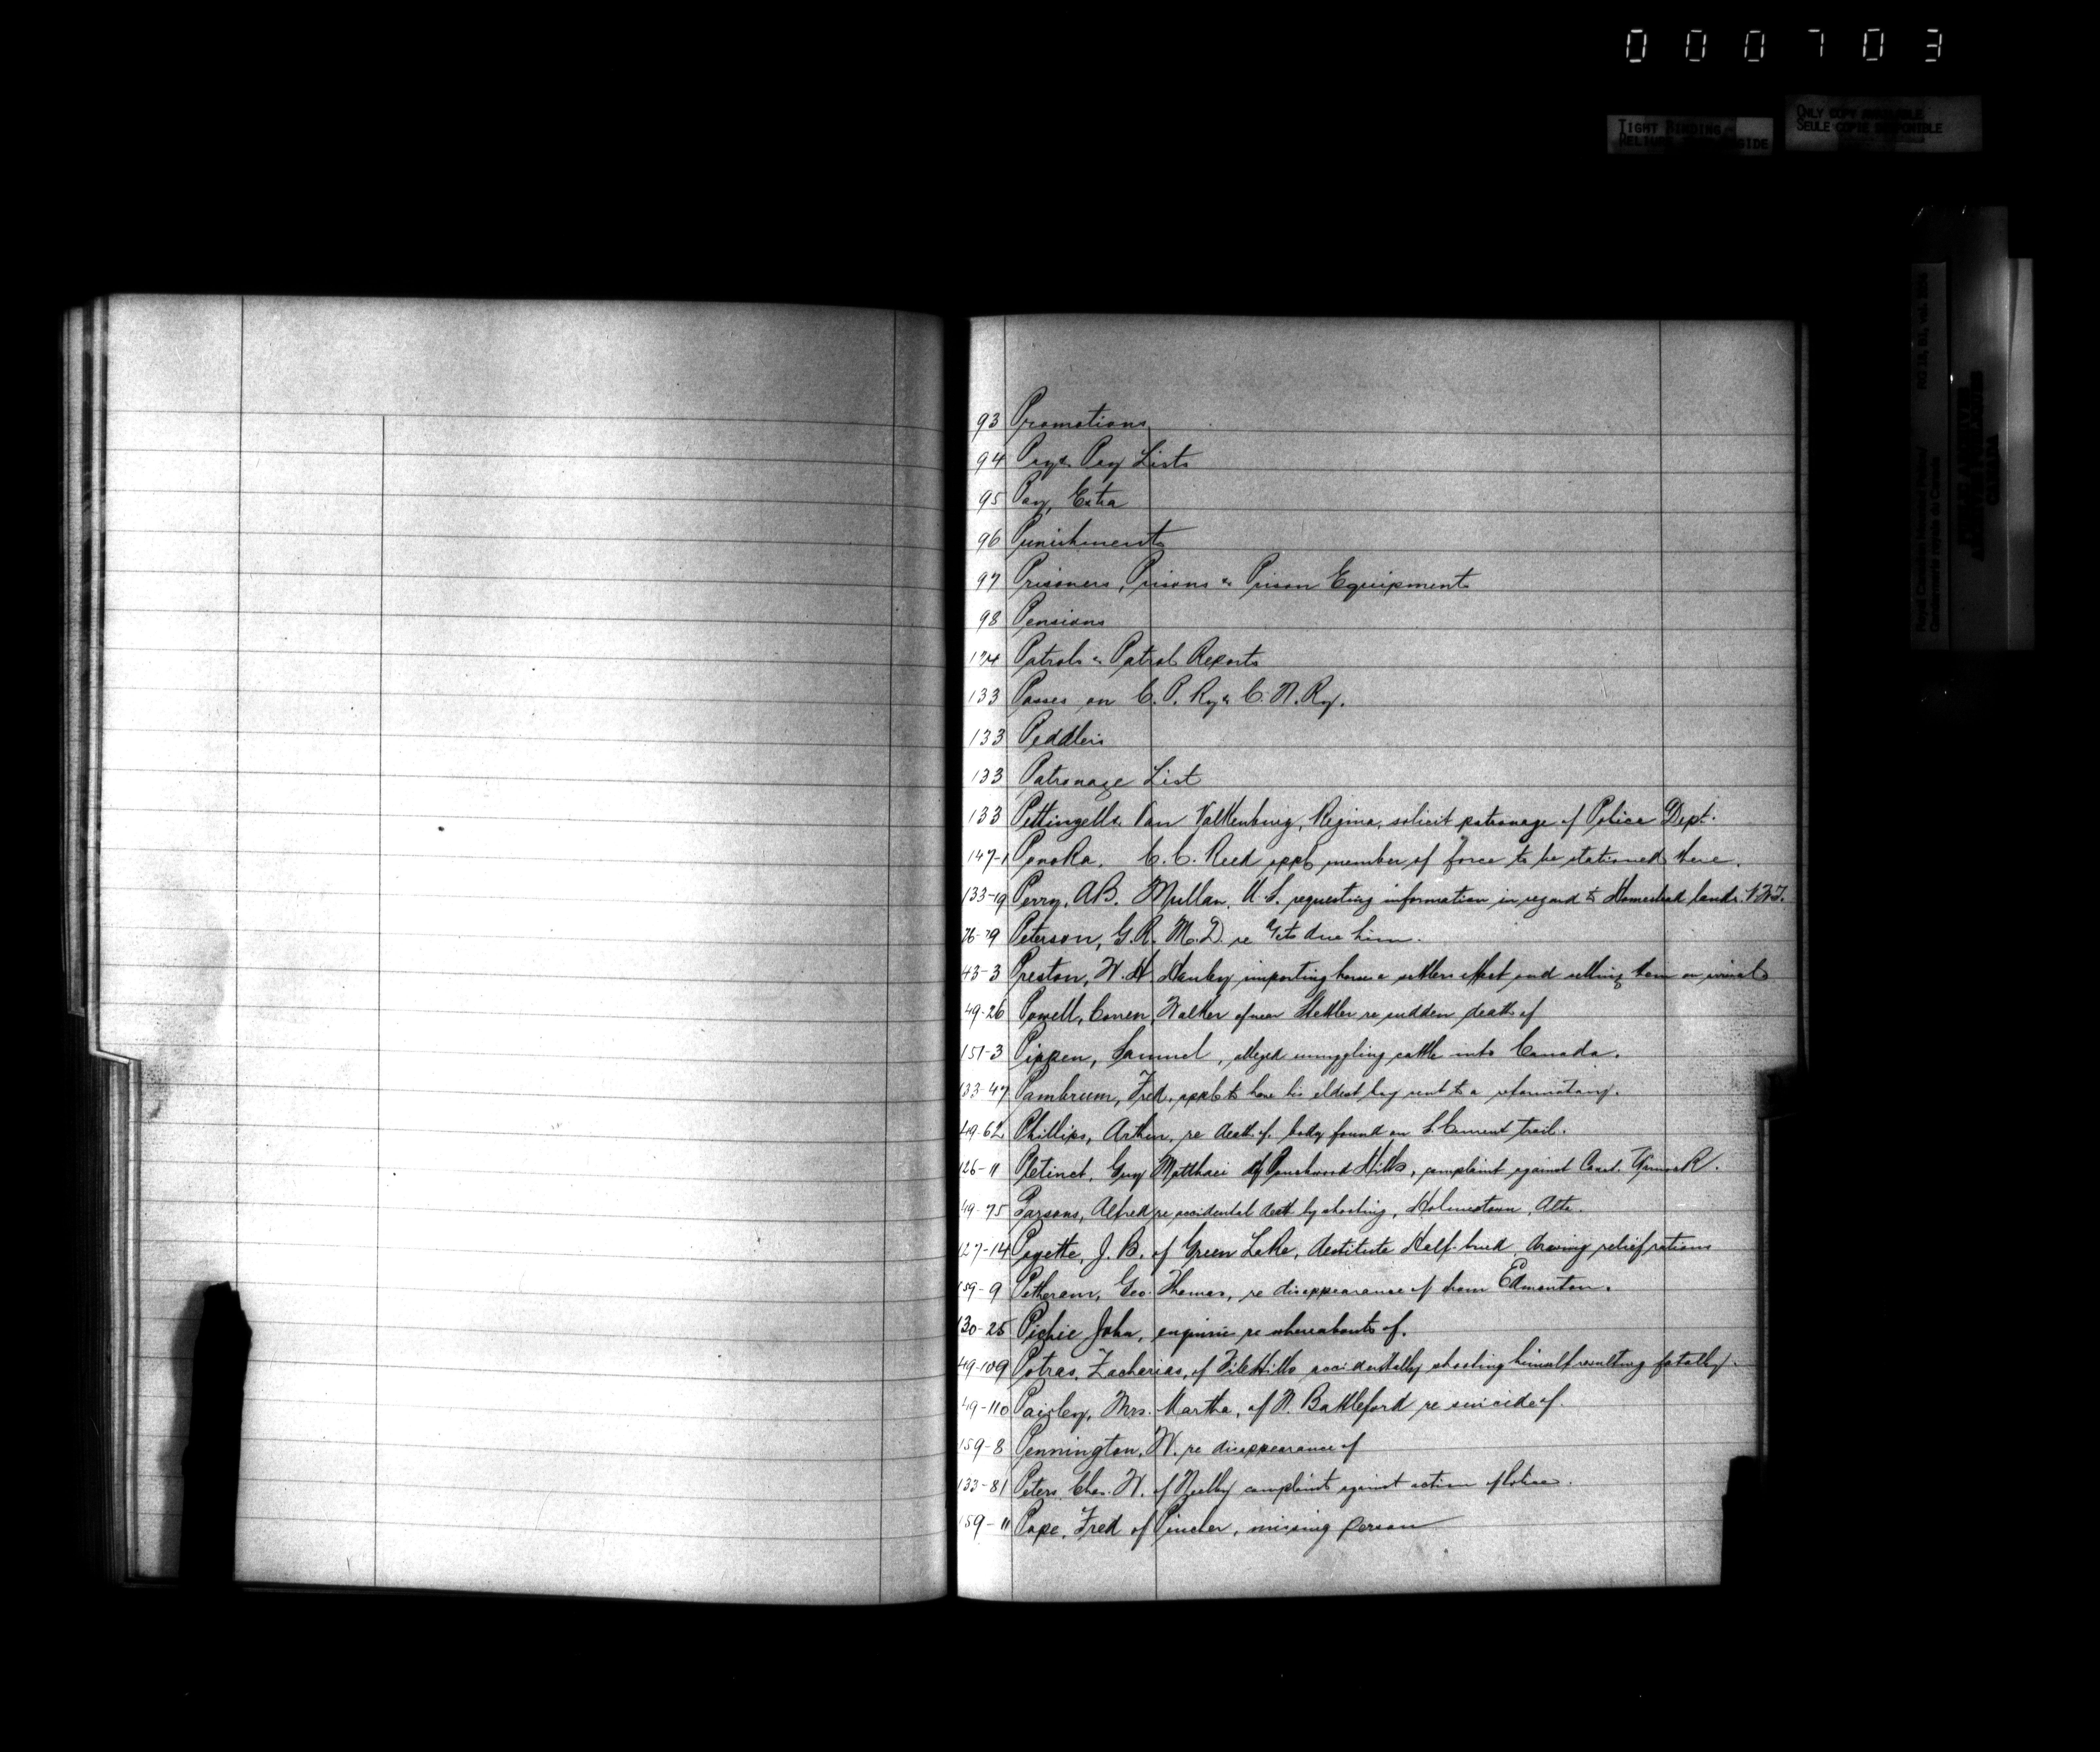 000703
TIGHT BINDING
ONLY COPY AVAILABLE
SEULE COPIE DISPONIBLE
93 Promotions
94 Pay & Pay Lists
95 Pay, Extra
96 Punishments
97 Prisoners, Prisons & Prison Equipment
98 Pensions
Patrols & Patrol Reports
133 Passes on C.P. Ry & C.N. Ry.
133 Peddlers
133 Patronage List
133 Pettingell & Van Valkenburg, Regina, solicit patronage of Police Dept.
147-1 Ponoka. C.C. Reed appl member of force to be stationed there.
133-19 Perry, A.B. Mullan, U.S. requesting information in regard to Homestead lands. N.W.T.
Peterson, G.R. M.D. re due him.
43-3 Preston, W.H. Hanley importing horses settlers effect and selling them on arrival
49-26 Powell, Walker of near Stettler re sudden death of
151-3 Pippen, Samuel, alleged smuggling cattle into Canada.
133-47 Pambrum, Fred, appl to have his eldest boy sent to a reformatory.
49-62 Phillips, Arthur, re death of, body found on trail.
126-11 Guy Matthaei of Touchwood Hills, complaint against Const.
49-75 Parsons, Alfred re accidental death by shooting, Holmestown, Alta.
127-14 Payette, J.B. of Green Lake, destitute Half-breed, drawing relief rations
159-9 Petheram, Geo. Thomas, re disappearance of from Edmonton.
130-25 Pichie John, enquiries re whereabouts of.
49-109 Potras, Zacharias, of File Hills accidentally shooting himself resulting fatally.
49-110 Paisley, Mrs. Martha, of N. Battleford re suicide of.
159-8 Pennington, W. re disappearance of
133-81 Peters, Chas. W. of complaint against action of Police.
159-11 Pape, Fred of Pincher, missing person